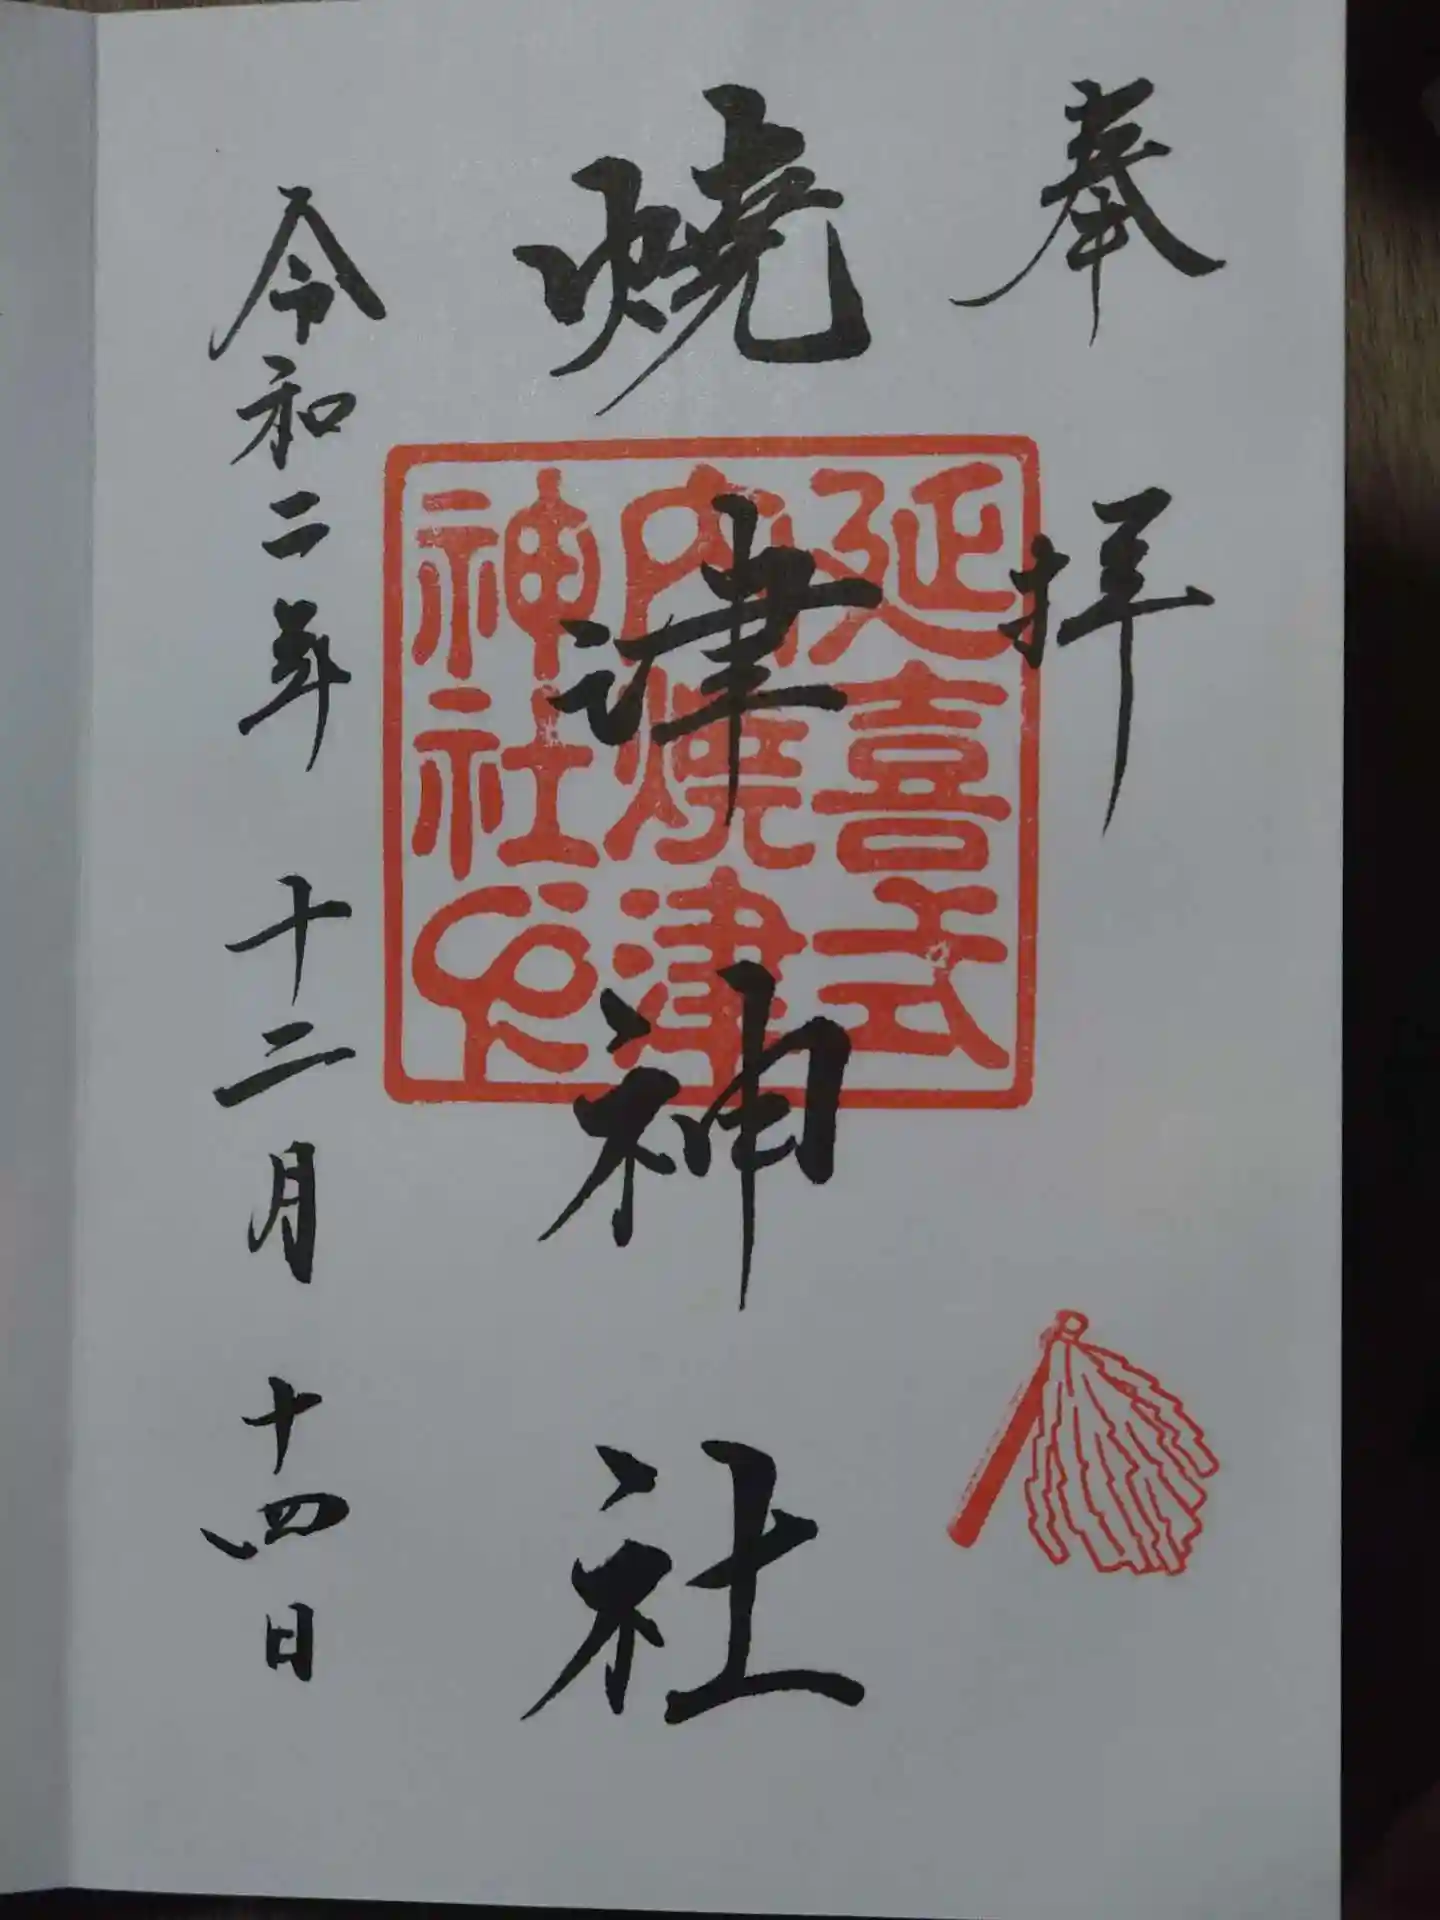 奉拝
焼津神社
令和二年十二月十四日
延喜式
内焼津
神社印